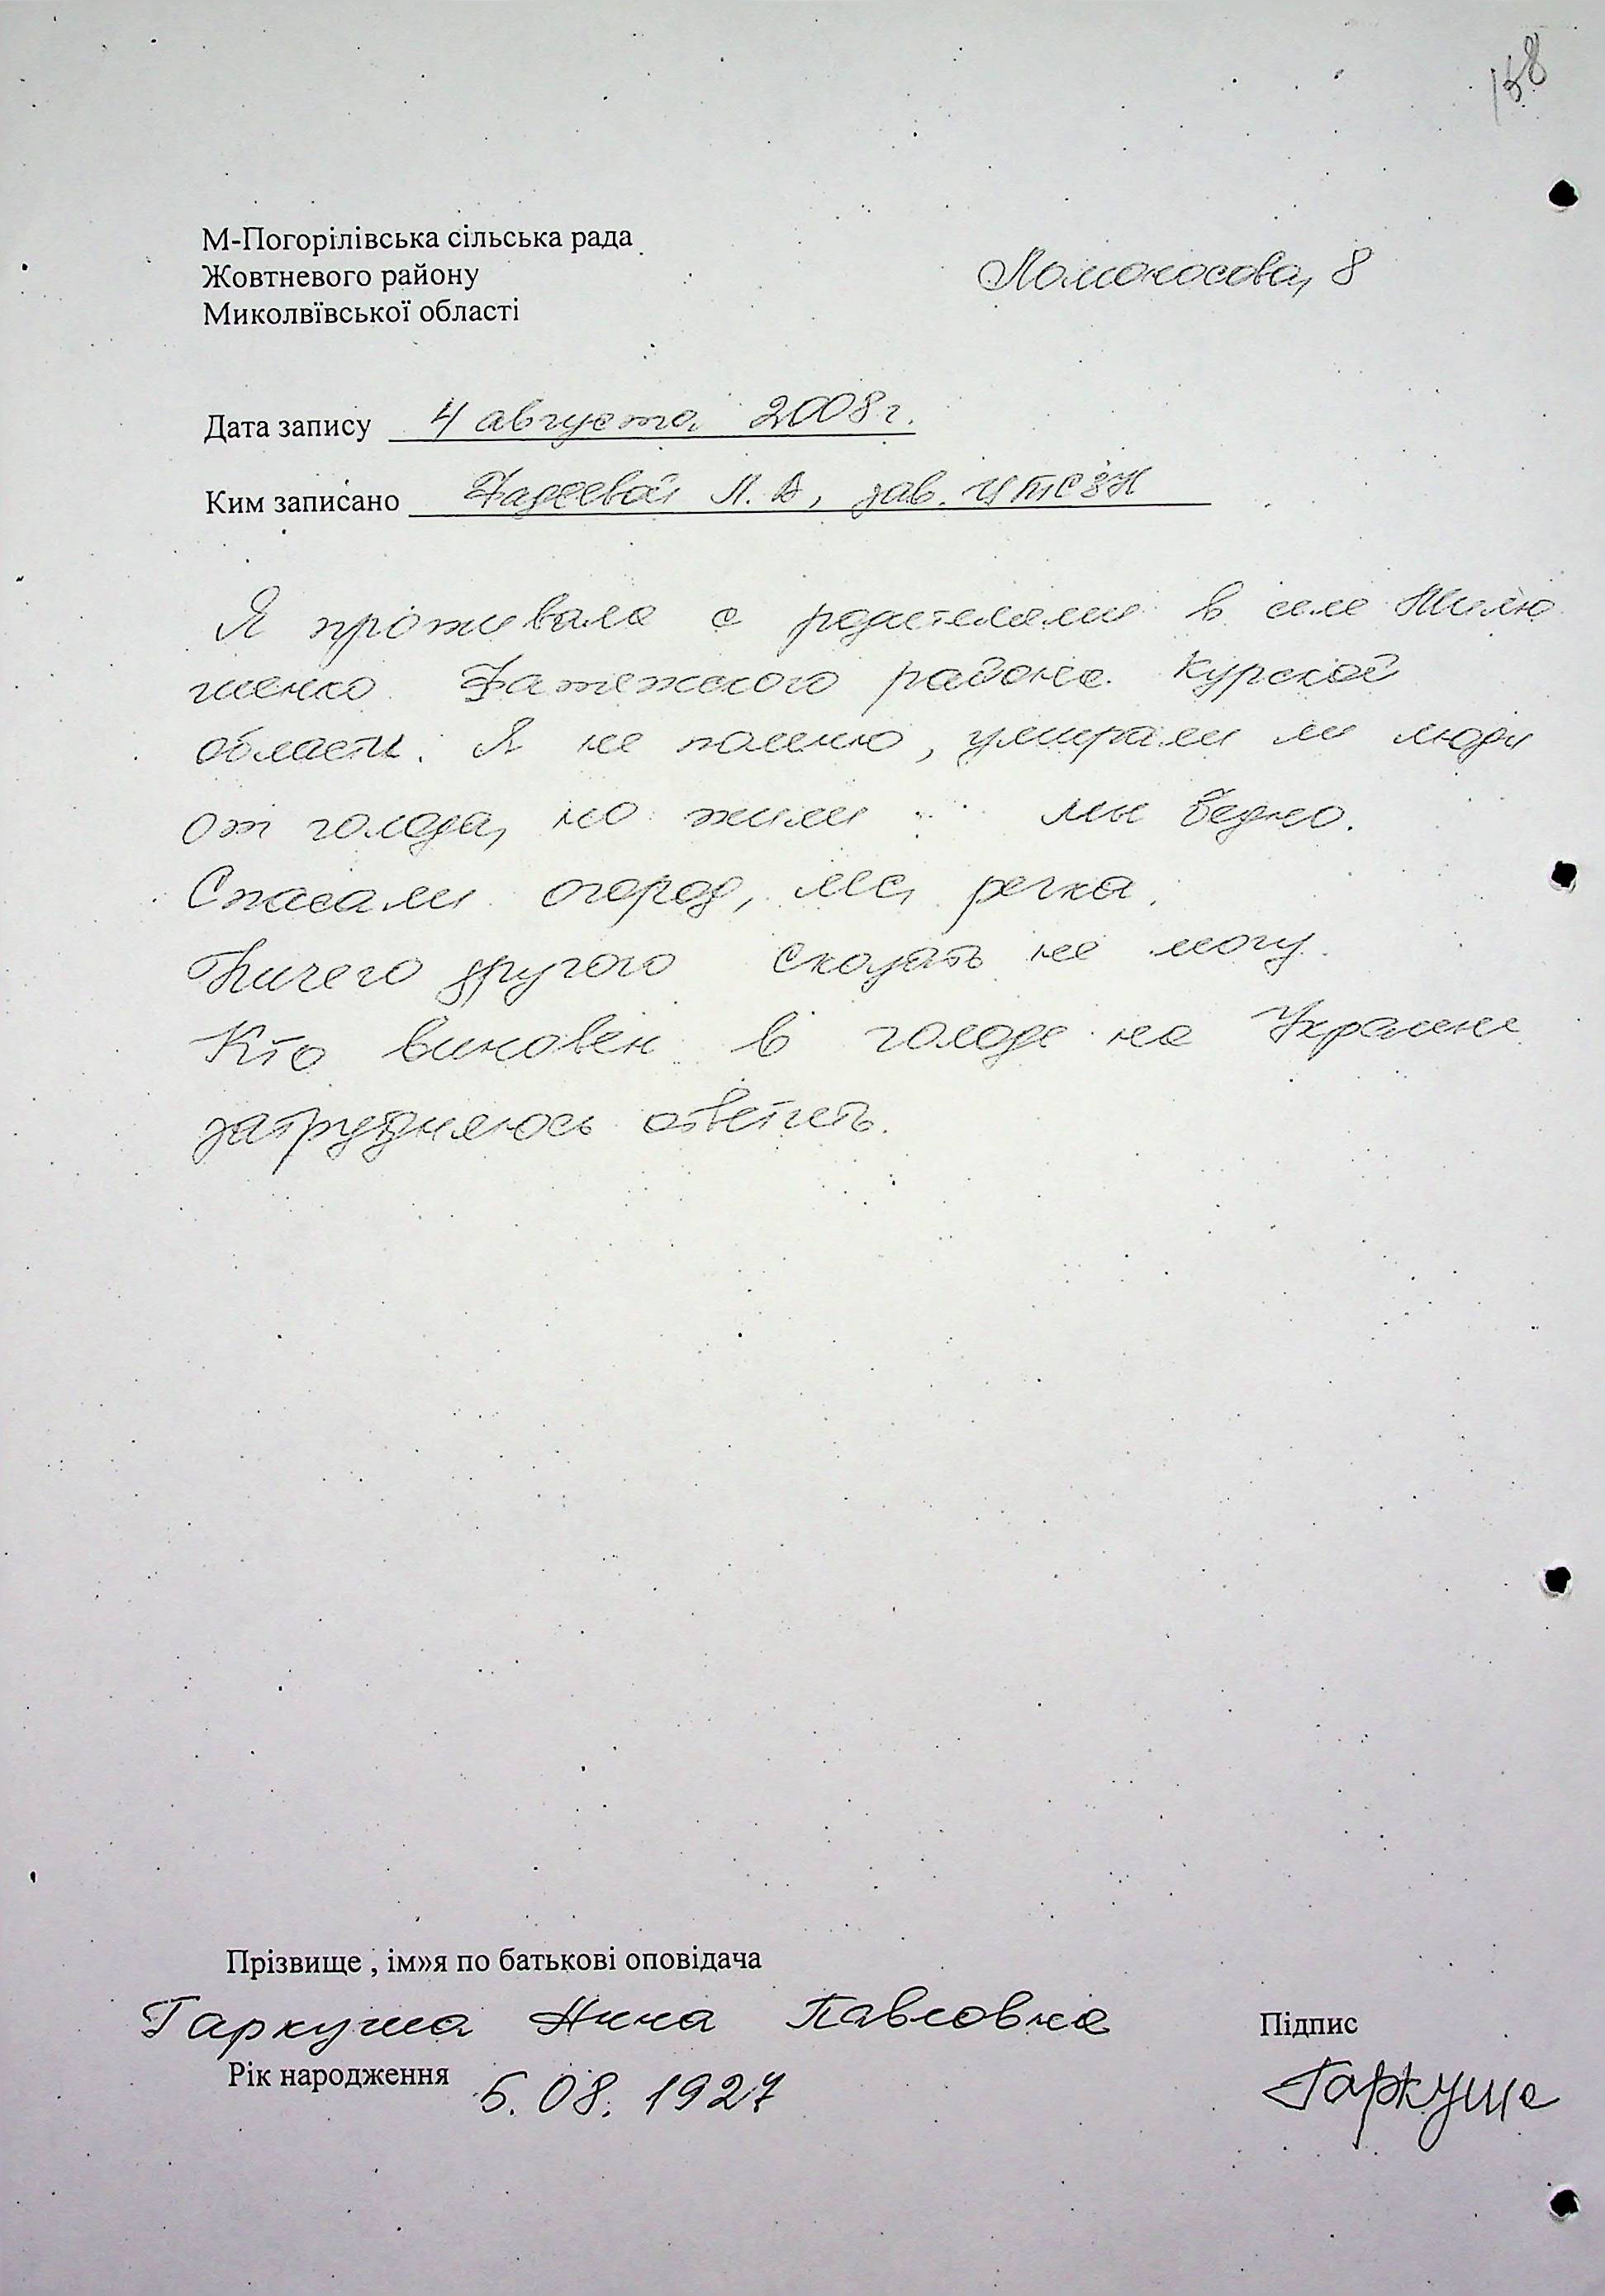 158
М-Погорілівська сільська рада
Жовтневого району
Миколвівської області
Ломоносова, 8
Дата запису 4 августа 2008 г.
Ким записано Фадеевой Л. В, зав. ЦТСЗН
Я проживала с родителями в селе
Фатежского района Курской
области. Я не помню, умирали ли люди
от голода, но жили мы бедно.
Спасали огород, лес, речка.
Ничего другого сказать не могу.
Кто виновен в голоде на Украине
затрудняюсь ответить.
Прізвище , ім»я по батькові оповідача
Гаркуша Анна Павловна
Підпис
Рік народження 5. 08. 1927
Гаркуша